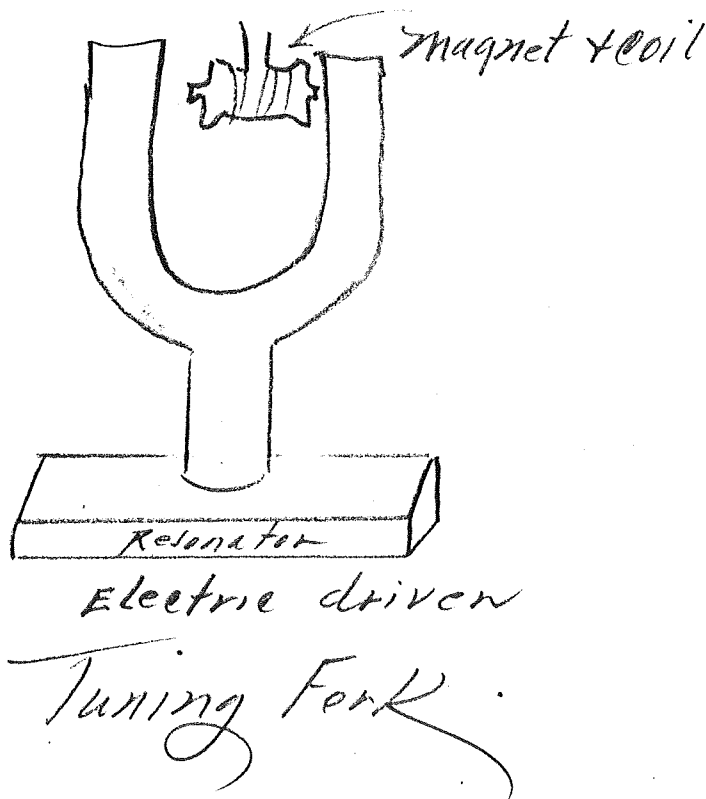 magnet & coil
Resonator
Electric driven
Tuning Fork.